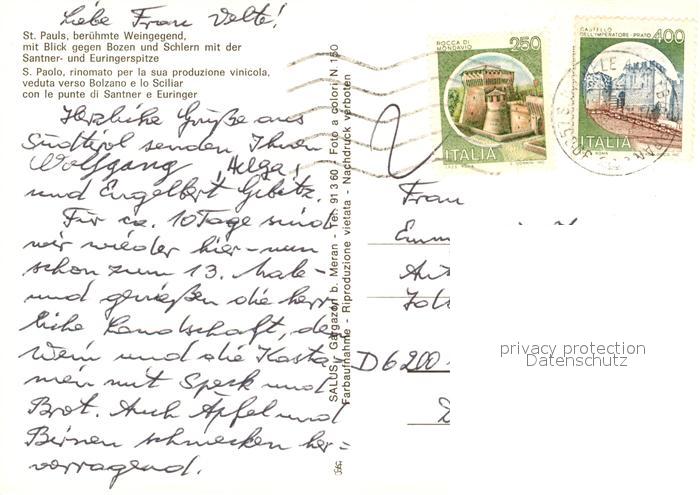 Liebe Frau Velte!
St. Pauls, berühmte Weingegend,
mit Blick gegen Bozen und Schlern mit der
Santner- und Euringerspitze
S. Paolo, rinomato per la sua produzione vinicola,
veduta verso Bolzano e lo Sciliar
con le punte di Santner e Euringer
Herzliche Grüße aus
Südtirol senden Ihnen
Wolfgang, Helga,
und Engelbert
Für ca. 10 Tage sind
wir wieder hier - nun
schon zum 13. Male -
und genießen die herr
liche Landschaft, den
Wein und die Kasta-
nien mit Speck und
Brot. Auch Äpfel und
Birnen schmecken her=
vorragend.
SALUS - Gargazon b. Meran - Tel. 91 3 60 - Foto a colori N. 150
Farbaufnahme - Riproduzione vietata - Nachdruck verboten
ROCCA DI
MONDAVIO
250
ITALIA
CASTELLO
DELL'IMPERATORE - PRATO
400
ITALIA
Frau
D 6200
privacy protection
Datenschutz